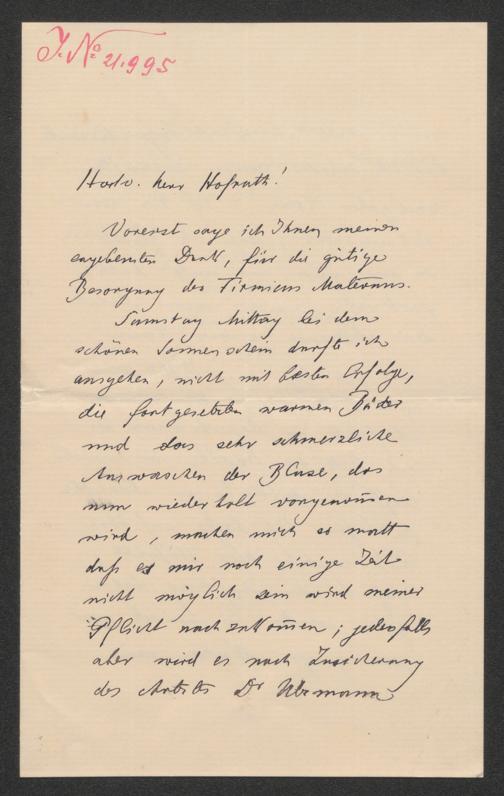 J. No 21.995
Hochv. Herr Hofrath!
Vorerst sage ich Ihnen meinen
ergebensten Dank, für die gütige
Besorgung des Firmicus Maternus.
Samstag Mittag bei dem
schönen Sonnenschein durfte ich
ausgehen, nicht mit besten Erfolge,
die fortgesetzten warmen Bäder
und das sehr schmerzliche
Auswaschen der Blase, das
nun wiederholt vorgenom̄en
wird, machen mich so matt
daß es mir noch einige Zeit
nicht möglich sein wird meiner
Pflicht nachzukom̄en; jedenfalls
aber wird es nach Zusicherung
des Arztes Dr